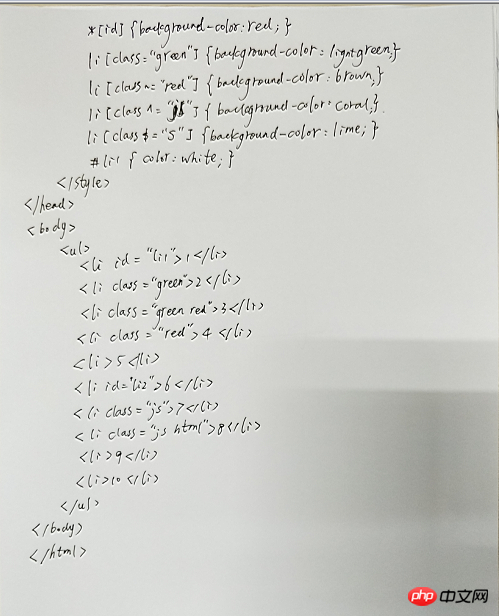 *[id] {background-color: red; }
li [class="green"] {background-color: lightgreen;}
li [class~="red"] {background-color: brown;}
li [class ^= "js"] { background-color: coral;}
li [class $= "S"] {background-color: lime; }
#li1 { color: white; }
</style>
</head>
<body>
<ul>
<li id = "li1">1</li>
<li class = "green">2</li>
<li class = "green red">3</li>
<li class = "red">4 </li>
<li>5</li>
<li id="li2">6</li>
<li class = "js">7</li>
<li class = "js html">8</li>
<li>9</li>
<li>10</li>
</ul>
</body>
</html>
php 中文网